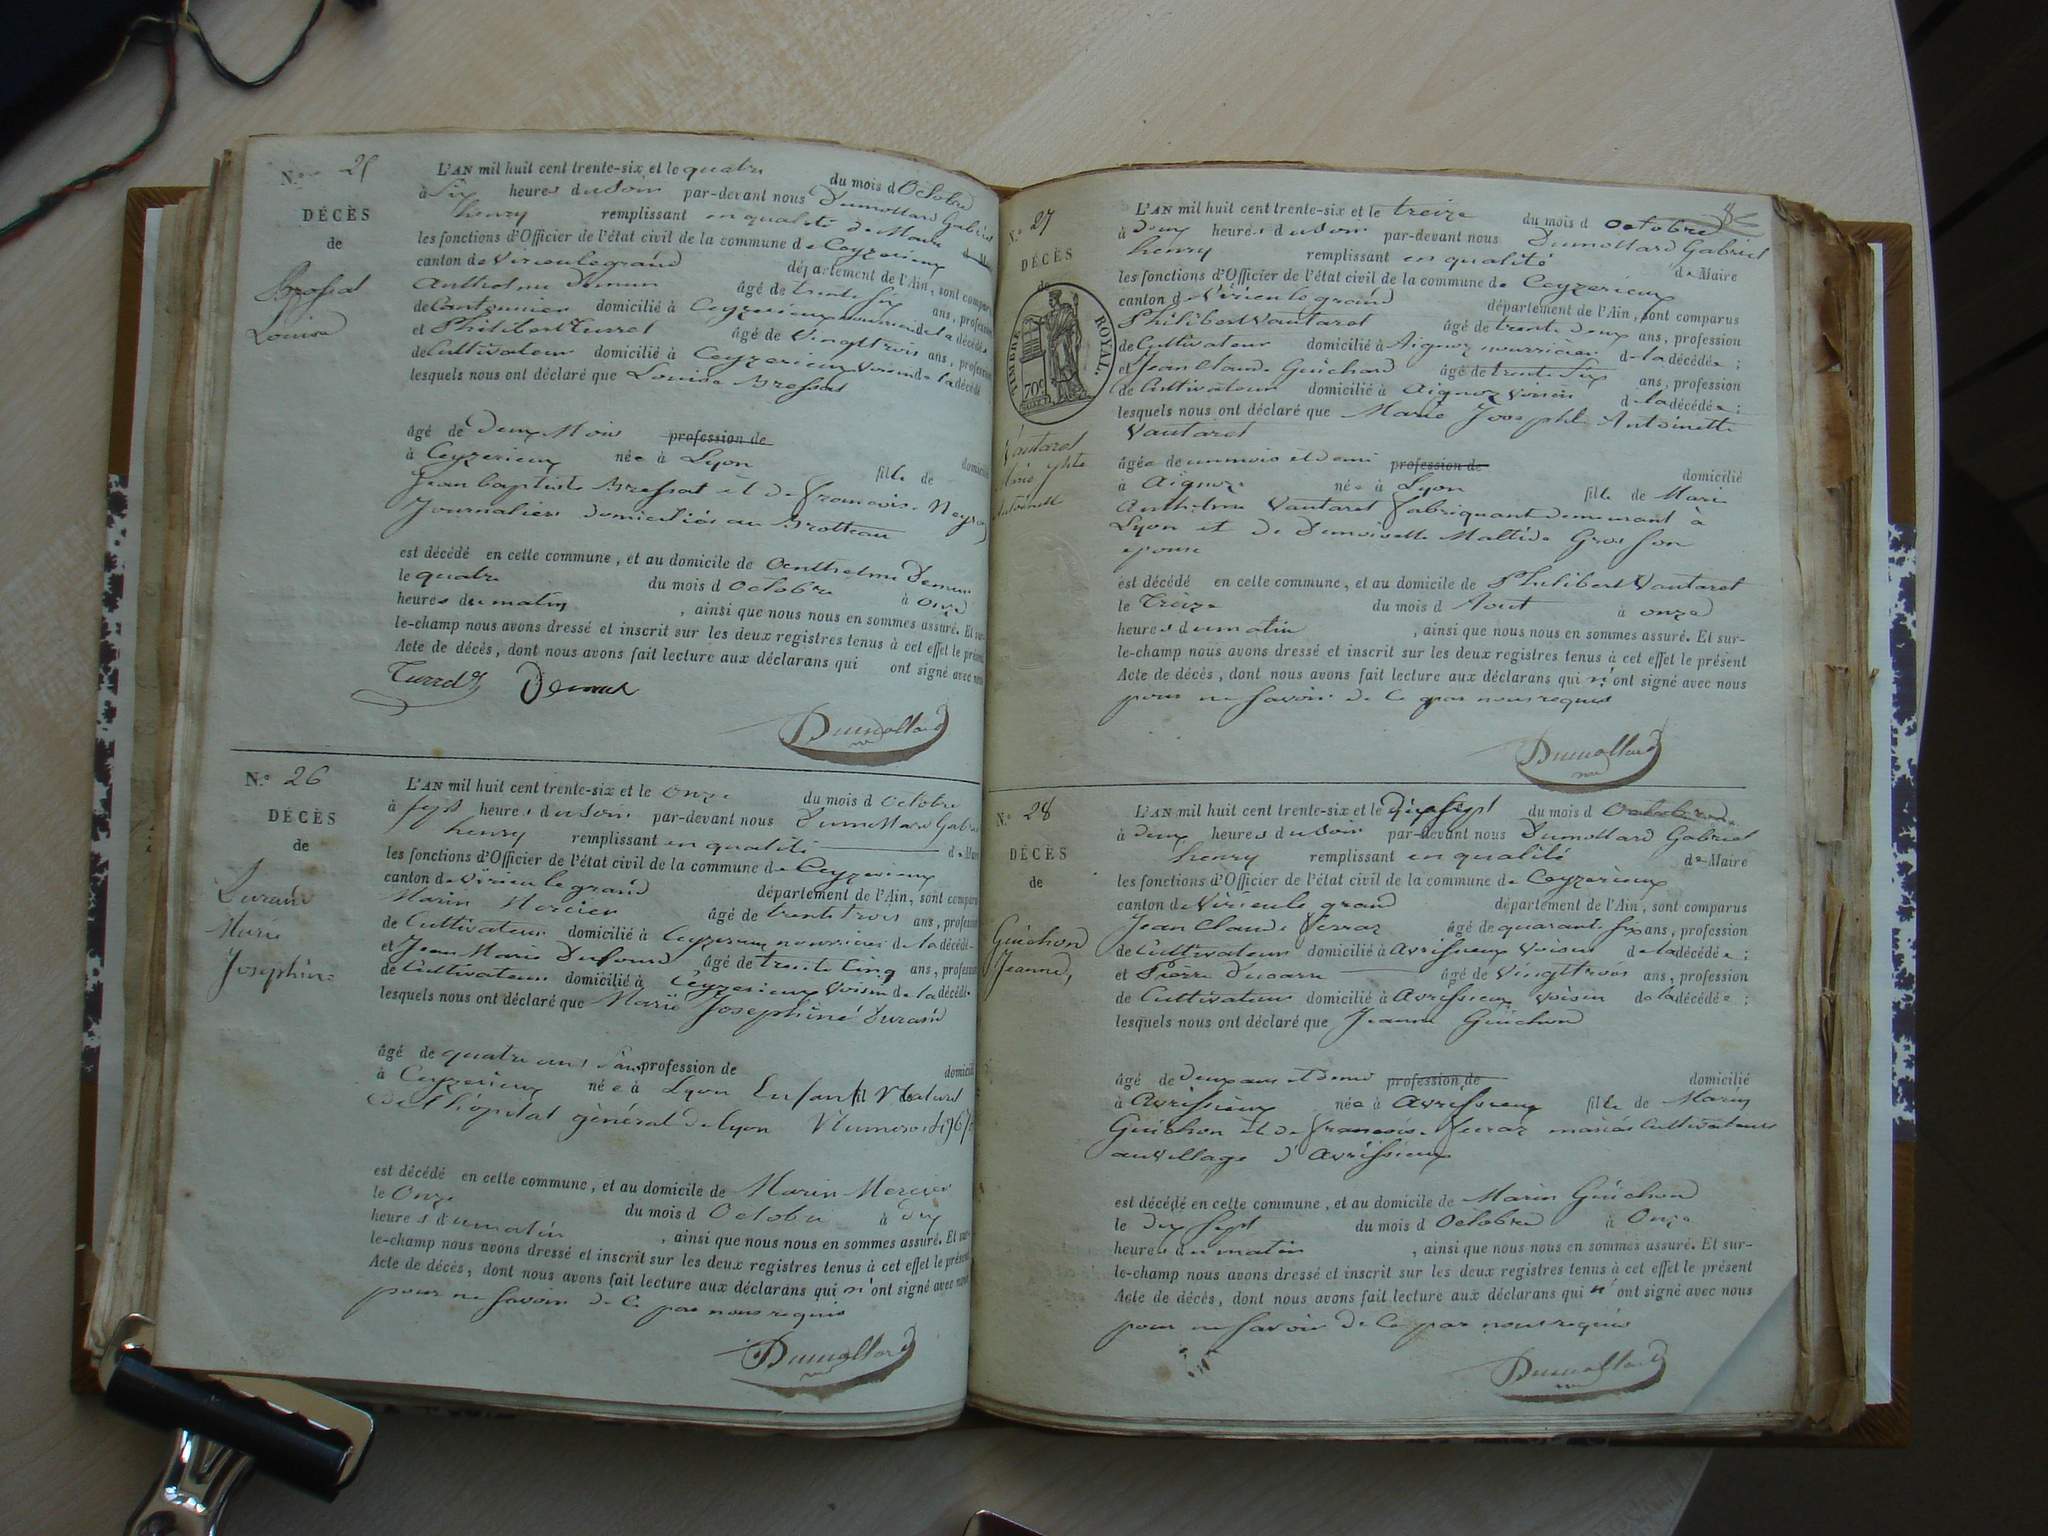 N.º 25
DÉCÈS
de
Bressat
Louise
L'AN mil huit cent trente-six et le quatre du mois d Octobre
à Six heures du Soir par-devant nous Dumollard Gabriel
henry remplissant en qualité de Maire
les fonctions d'Officier de l'état civil de la commune de Ceyzerieux
canton de Virieulegrand département de l'Ain, sont comparus
Anthelme âgé de trente six ans, profession
de Cantonnier domicilié à Ceyzerieux nourricier de la décédée
et Philibert Turrel âgé de Vingttrois ans, profession
de Cultivateur domicilié à Ceyzerieux Voisin de la décédé
lesquels nous ont déclaré que Louise Bressat
âgé de deux Mois profession de domicilié
à Ceyzerieux née à Lyon fille de
Jean baptiste Bressat et de francoise
Journaliers domiciliés au Brotteau
est décédé en cette commune, et au domicile de anthelme
le quatre du mois d Octobre à onze
heures du matin, ainsi que nous nous en sommes assuré. Et sur-
le-champ nous avons dressé et inscrit sur les deux registres tenus à cet effet le présent
Acte de décès, dont nous avons fait lecture aux déclarans qui ont signé avec nous
Turrel
Dumollard
N.º 26
DÉCÈS
de
Durand
Marie
Josephine
L'AN mil huit cent trente-six et le Onze du mois d Octobre
à sept heures du Soir par-devant nous Dumollard Gabriel
henry remplissant en qualité de Maire
les fonctions d'Officier de l'état civil de la commune de Ceyzerieux
canton de Virieu le grand département de l'Ain, sont comparus
Marin Mercier âgé de trente trois ans, profession
de Cultivateur domicilié à Ceyzerieux nourricier de la décédé
et Jean Marie Dufour âgé de trente Cinq ans, profession
de Cultivateur domicilié à Ceyzerieux Voisin de la décédé
lesquels nous ont déclaré que Marie Josephine Durand
âgé de quatre ans Sans profession de domicilié
à Ceyzerieux née à Lyon Enfant Naturel
de l'hôpital général de lyon Numero
est décédé en cette commune, et au domicile de Marin Mercier
le Onze du mois d Octobre à dix
heures du matin, ainsi que nous nous en sommes assuré. Et sur-
le-champ nous avons dressé et inscrit sur les deux registres tenus à cet effet le présent
Acte de décès, dont nous avons fait lecture aux déclarans qui n'ont signé avec nous
pour ne Savoir de Ce par nous requis
Dumollard
N.º 27
DÉCÈS
de
TIMBRE ROYAL.
70c
Vautaret
Marie
Antoinette
L'AN mil huit cent trente-six et le treize du mois d octobre
à deux heures du Soir par-devant nous Dumollard Gabriel
henry remplissant en qualité de Maire
les fonctions d'Officier de l'état civil de la commune de Ceyzerieux
canton d Virieu le grand département de l'Ain, sont comparus
Philibert Vautaret âgé de trente deux ans, profession
de Cultivateur domicilié à Aignoz nourricier de la décédée;
et Jean Claude Guichard âgé de trente Six ans, profession
de Cultivateur domicilié à Aignoz Voisin de la décédée;
lesquels nous ont déclaré que Marie Josephte Antoinette
Vautaret
âgée de un mois et demi profession de domicilié
à Aignoz née à Lyon fille de Marie
Anthelme Vautaret fabriquant demeurant à
Lyon et de Demoiselle Maltide Gros Son
epouse
est décédé en cette commune, et au domicile de Philibert Vautaret
le Treize du mois d Aout à onze
heures du matin, ainsi que nous nous en sommes assuré. Et sur-
le-champ nous avons dressé et inscrit sur les deux registres tenus à cet effet le présent
Acte de décès, dont nous avons fait lecture aux déclarans qui n'ont signé avec nous
pour ne Savoir de Ce par nous requis
Dumollard
N.º 28
DÉCÈS
de
Guichon
Jeanne
L'AN mil huit cent trente-six et le dix sept du mois d Octobre
à deux heures du Soir par-devant nous Dumollard Gabriel
henry remplissant en qualité de Maire
les fonctions d'Officier de l'état civil de la commune de Ceyzerieux
canton de Virieu le grand département de l'Ain, sont comparus
Jean Claude Verraz âgé de quarante six ans, profession
de Cultivateur domicilié à Avrissieux Voisin de la décédée;
et Pierre Ducarre âgé de Vingttrois ans, profession
de Cultivateur domicilié à Avrissieux Voisin de la décédée;
lesquels nous ont déclaré que Jeanne Guichon
âgé de deux ans et demi profession de domicilié
à Avrissieux née à Avrissieux fille de Marin
Guichon et de francoise Verraz mariés Cultivateurs
au village d'Avrissieux
est décédé en cette commune, et au domicile de Marin Guichon
le dix Sept du mois d Octobre à Onze
heures du matin, ainsi que nous nous en sommes assuré. Et sur-
le-champ nous avons dressé et inscrit sur les deux registres tenus à cet effet le présent
Acte de décès, dont nous avons fait lecture aux déclarans qui n'ont signé avec nous
pour ne Savoir de Ce par nous requis
Dumollard